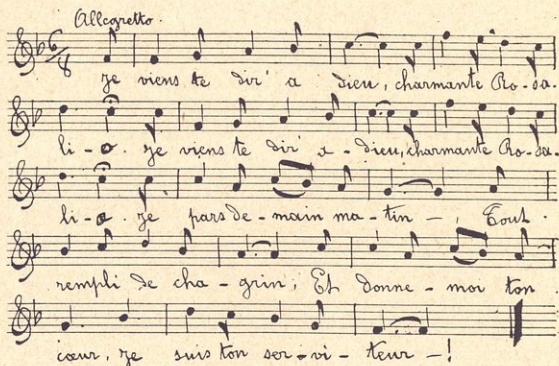 Allegretto.
6/8
Je viens te dir' a dieu, charmante Ro-sa-
li-e. Je viens te dir' a-dieu, charmante Ro-sa-
li-e. Je pars de-main ma-tin -, Tout
rempli de cha-grin; Et donne-moi ton
cœur, Je suis ton ser-vi-teur -!